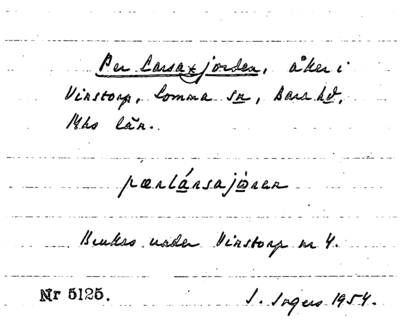 Per Larsa-jorden, åker i
Vinstorp, Lomma sn, Bara hd,
Mhs län.
pærlársajòren
Brukas under Vinstorp nr 4.
Nr 5125. S. Ingers 1954.